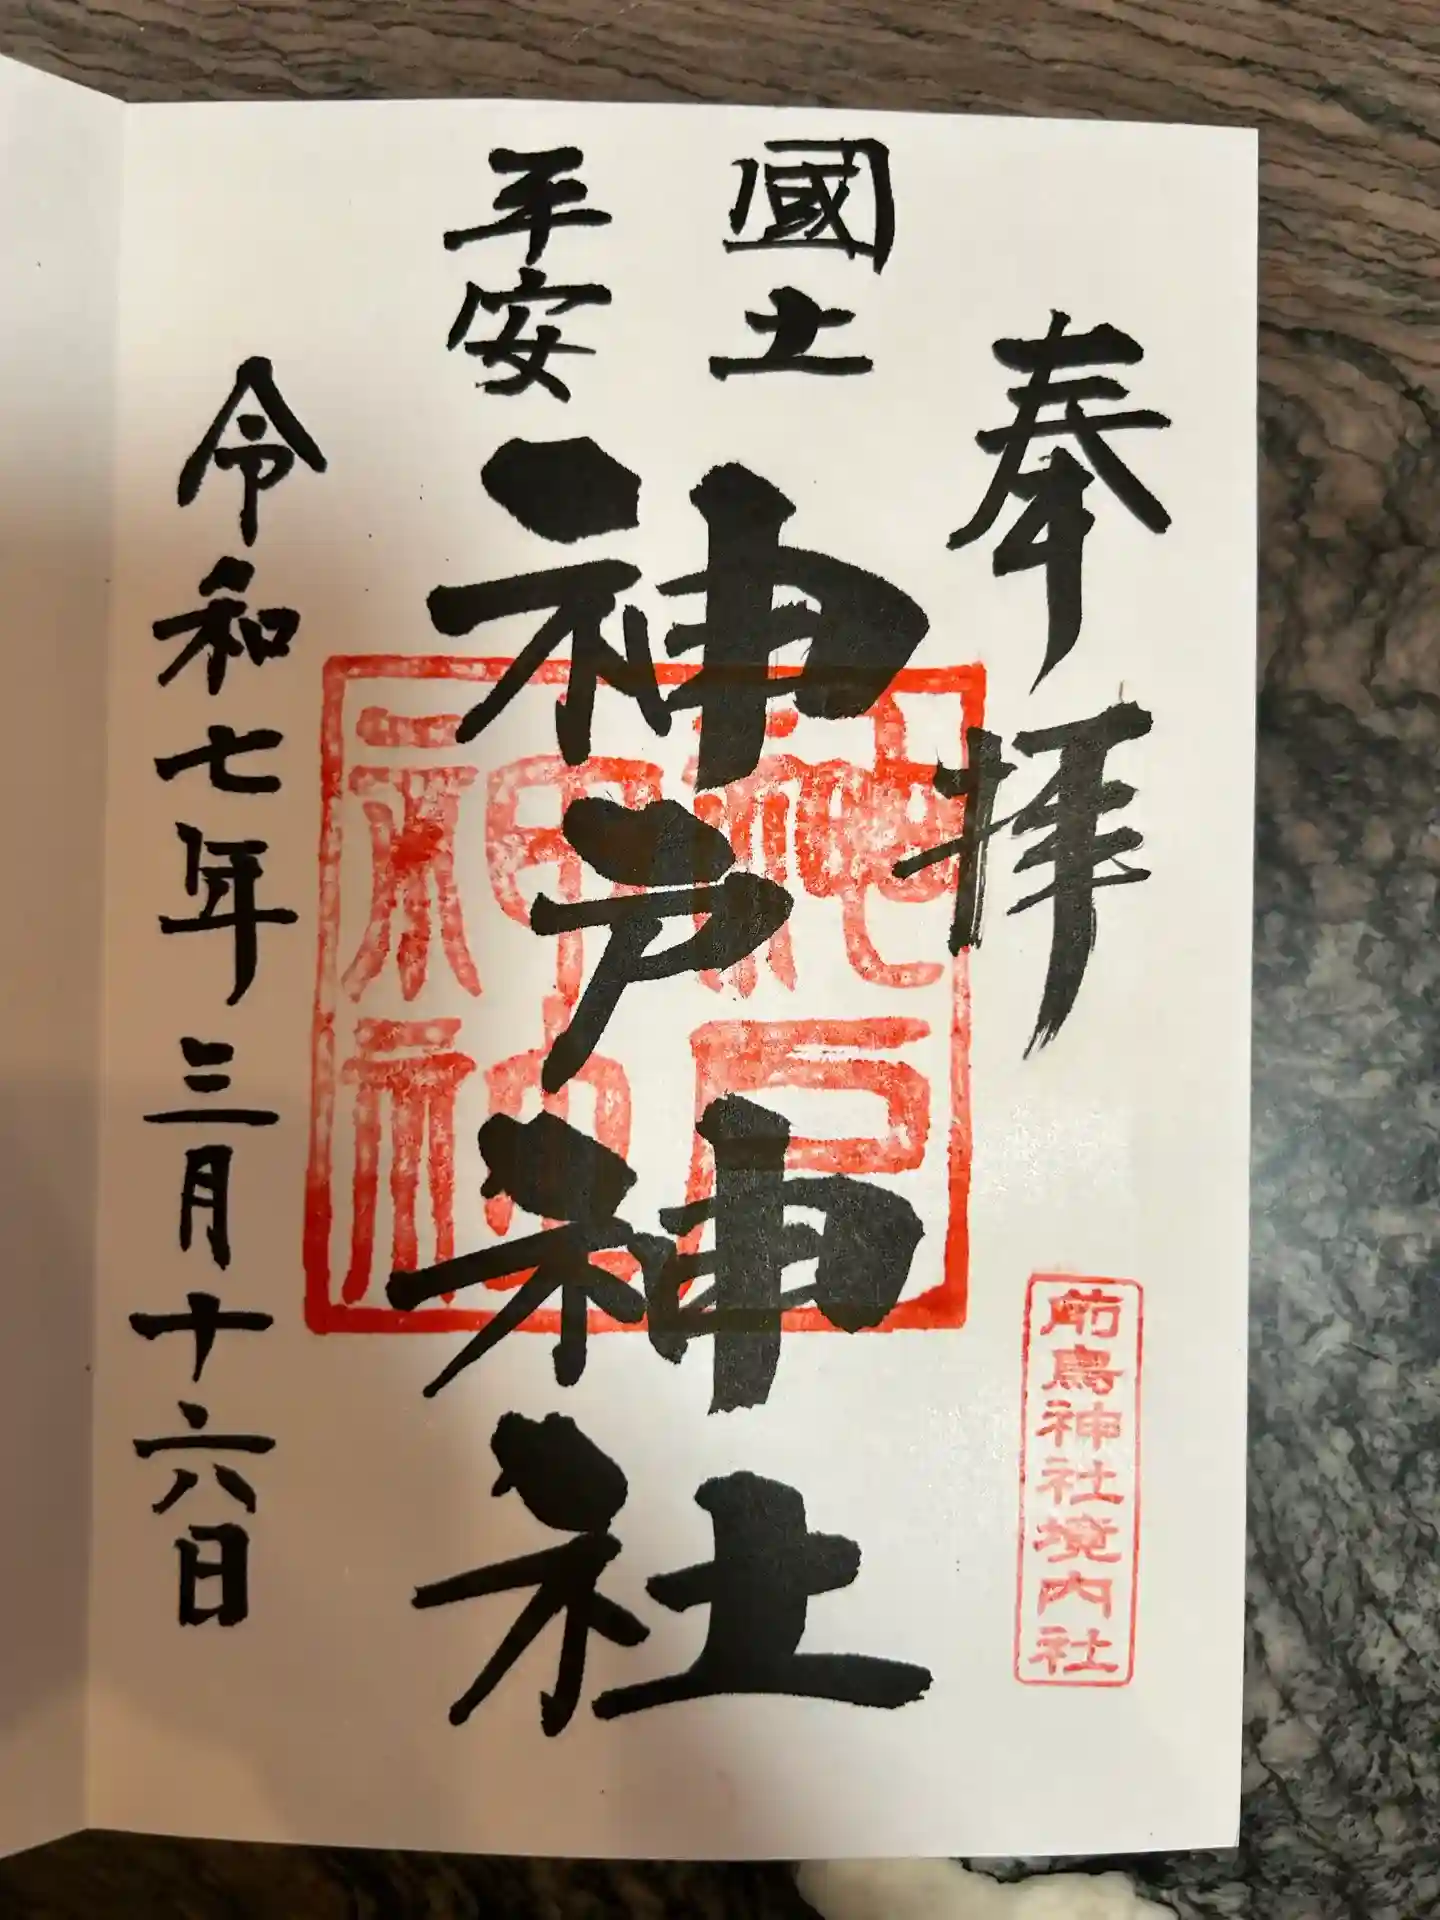 奉拝
國土
平安
神戸神社
令和七年三月十六日
前鳥神社境内社